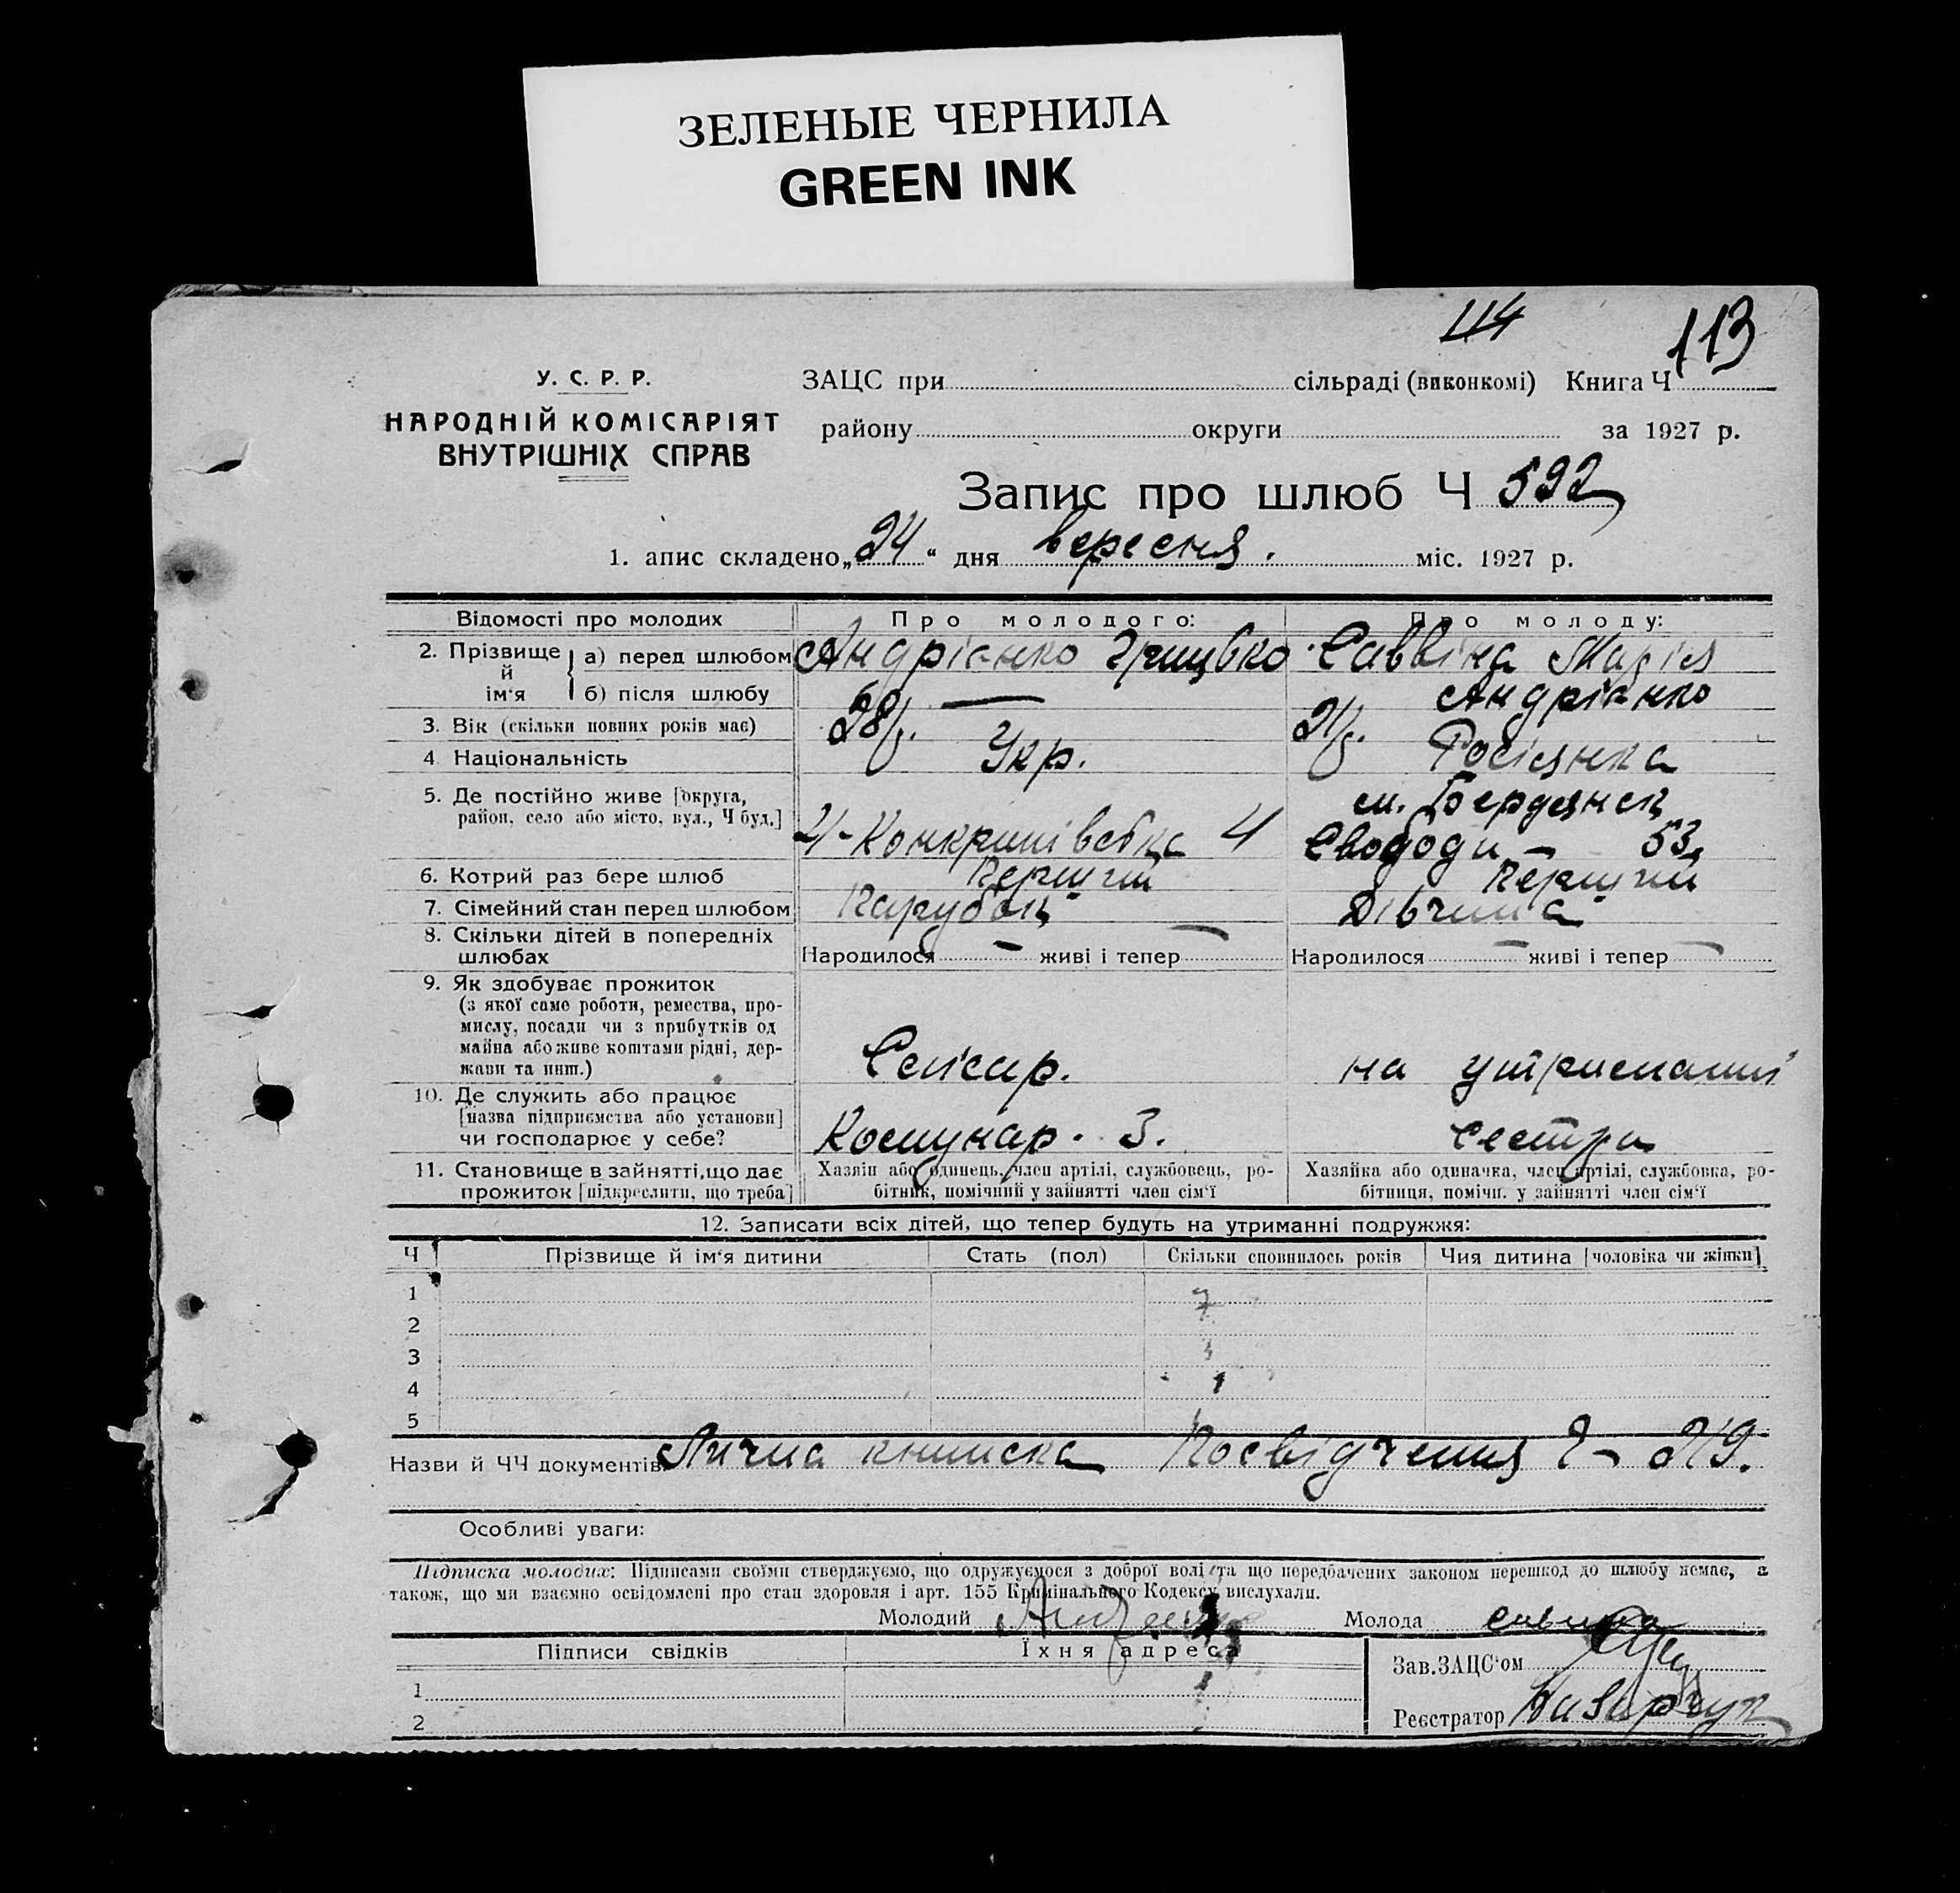 ЗЕЛЕНЫЕ ЧЕРНИЛА
GREEN INK
114
113
У. С. Р. Р.
НАРОДНІЙ КОМІСАРІЯТ
ВНУТРІШНІХ СПРАВ
ЗАЦС при сільраді (виконкомі) Книга Ч
району округи за 1927 р.
Запис про шлюб Ч 592
1. апис складено „24“ дня вересня. міс. 1927 р.
Відомості про молодих Про молодого: Про молоду:
2. Прізвище й ім'я { а) перед шлюбом Андріянко Грицько Саввіна Марія
б) після шлюбу — Андріянко
3. Вік (скільки повних років має) 28 р. 21 р.
4. Національність Укр. Росіянка
5. Де постійно живе [округа, район, село або місто, вул., Ч буд.] 4 м. Бердянськ
Свободи – 53
6. Котрий раз бере шлюб Перший Перший
7. Сімейний стан перед шлюбом Парубок Дівчина
8. Скільки дітей в попередніх шлюбах Народилося — живі і тепер — Народилося — живі і тепер —
9. Як здобуває прожиток
(з якої саме роботи, ремества, про-
мислу, посади чи з прибутків од
майна або живе коштами рідні, дер-
жави та инш.) Слісар. на утриманні
10. Де служить або працює
[назва підприємства або установи]
чи господарює у себе? Комунар. З. сестри
11. Становище в зайнятті, що дає Хазяін або одинець, член артілі, службовець, ро- Хазяйка або одиначка, член артілі, службовка, ро-
прожиток [підкреслити, що треба] бітник, помічний у зайнятті член сім'ї бітниця, помічн. у зайнятті член сім'ї
12. Записати всіх дітей, що тепер будуть на утриманні подружжя:
Ч Прізвище й ім'я дитини Стать (пол) Скільки сповнилось років Чия дитина [чоловіка чи жінки]
1
2
3
4
5
Назви й ЧЧ документів Лична книжка Посвідчення Ч – 219.
Особливі уваги:
Підписка молодих: Підписами своїми стверджуємо, що одружуємося з доброї волі та що передбачених законом перешкод до шлюбу немає, а
також, що ми взаємно освідомлені про стан здоровля і арт. 155 Кримінального Кодексу вислухали.
Молодий Молода Савина
Підписи свідків Їхня адреса
Зав.ЗАЦС'ом
1
Реєстратор
2